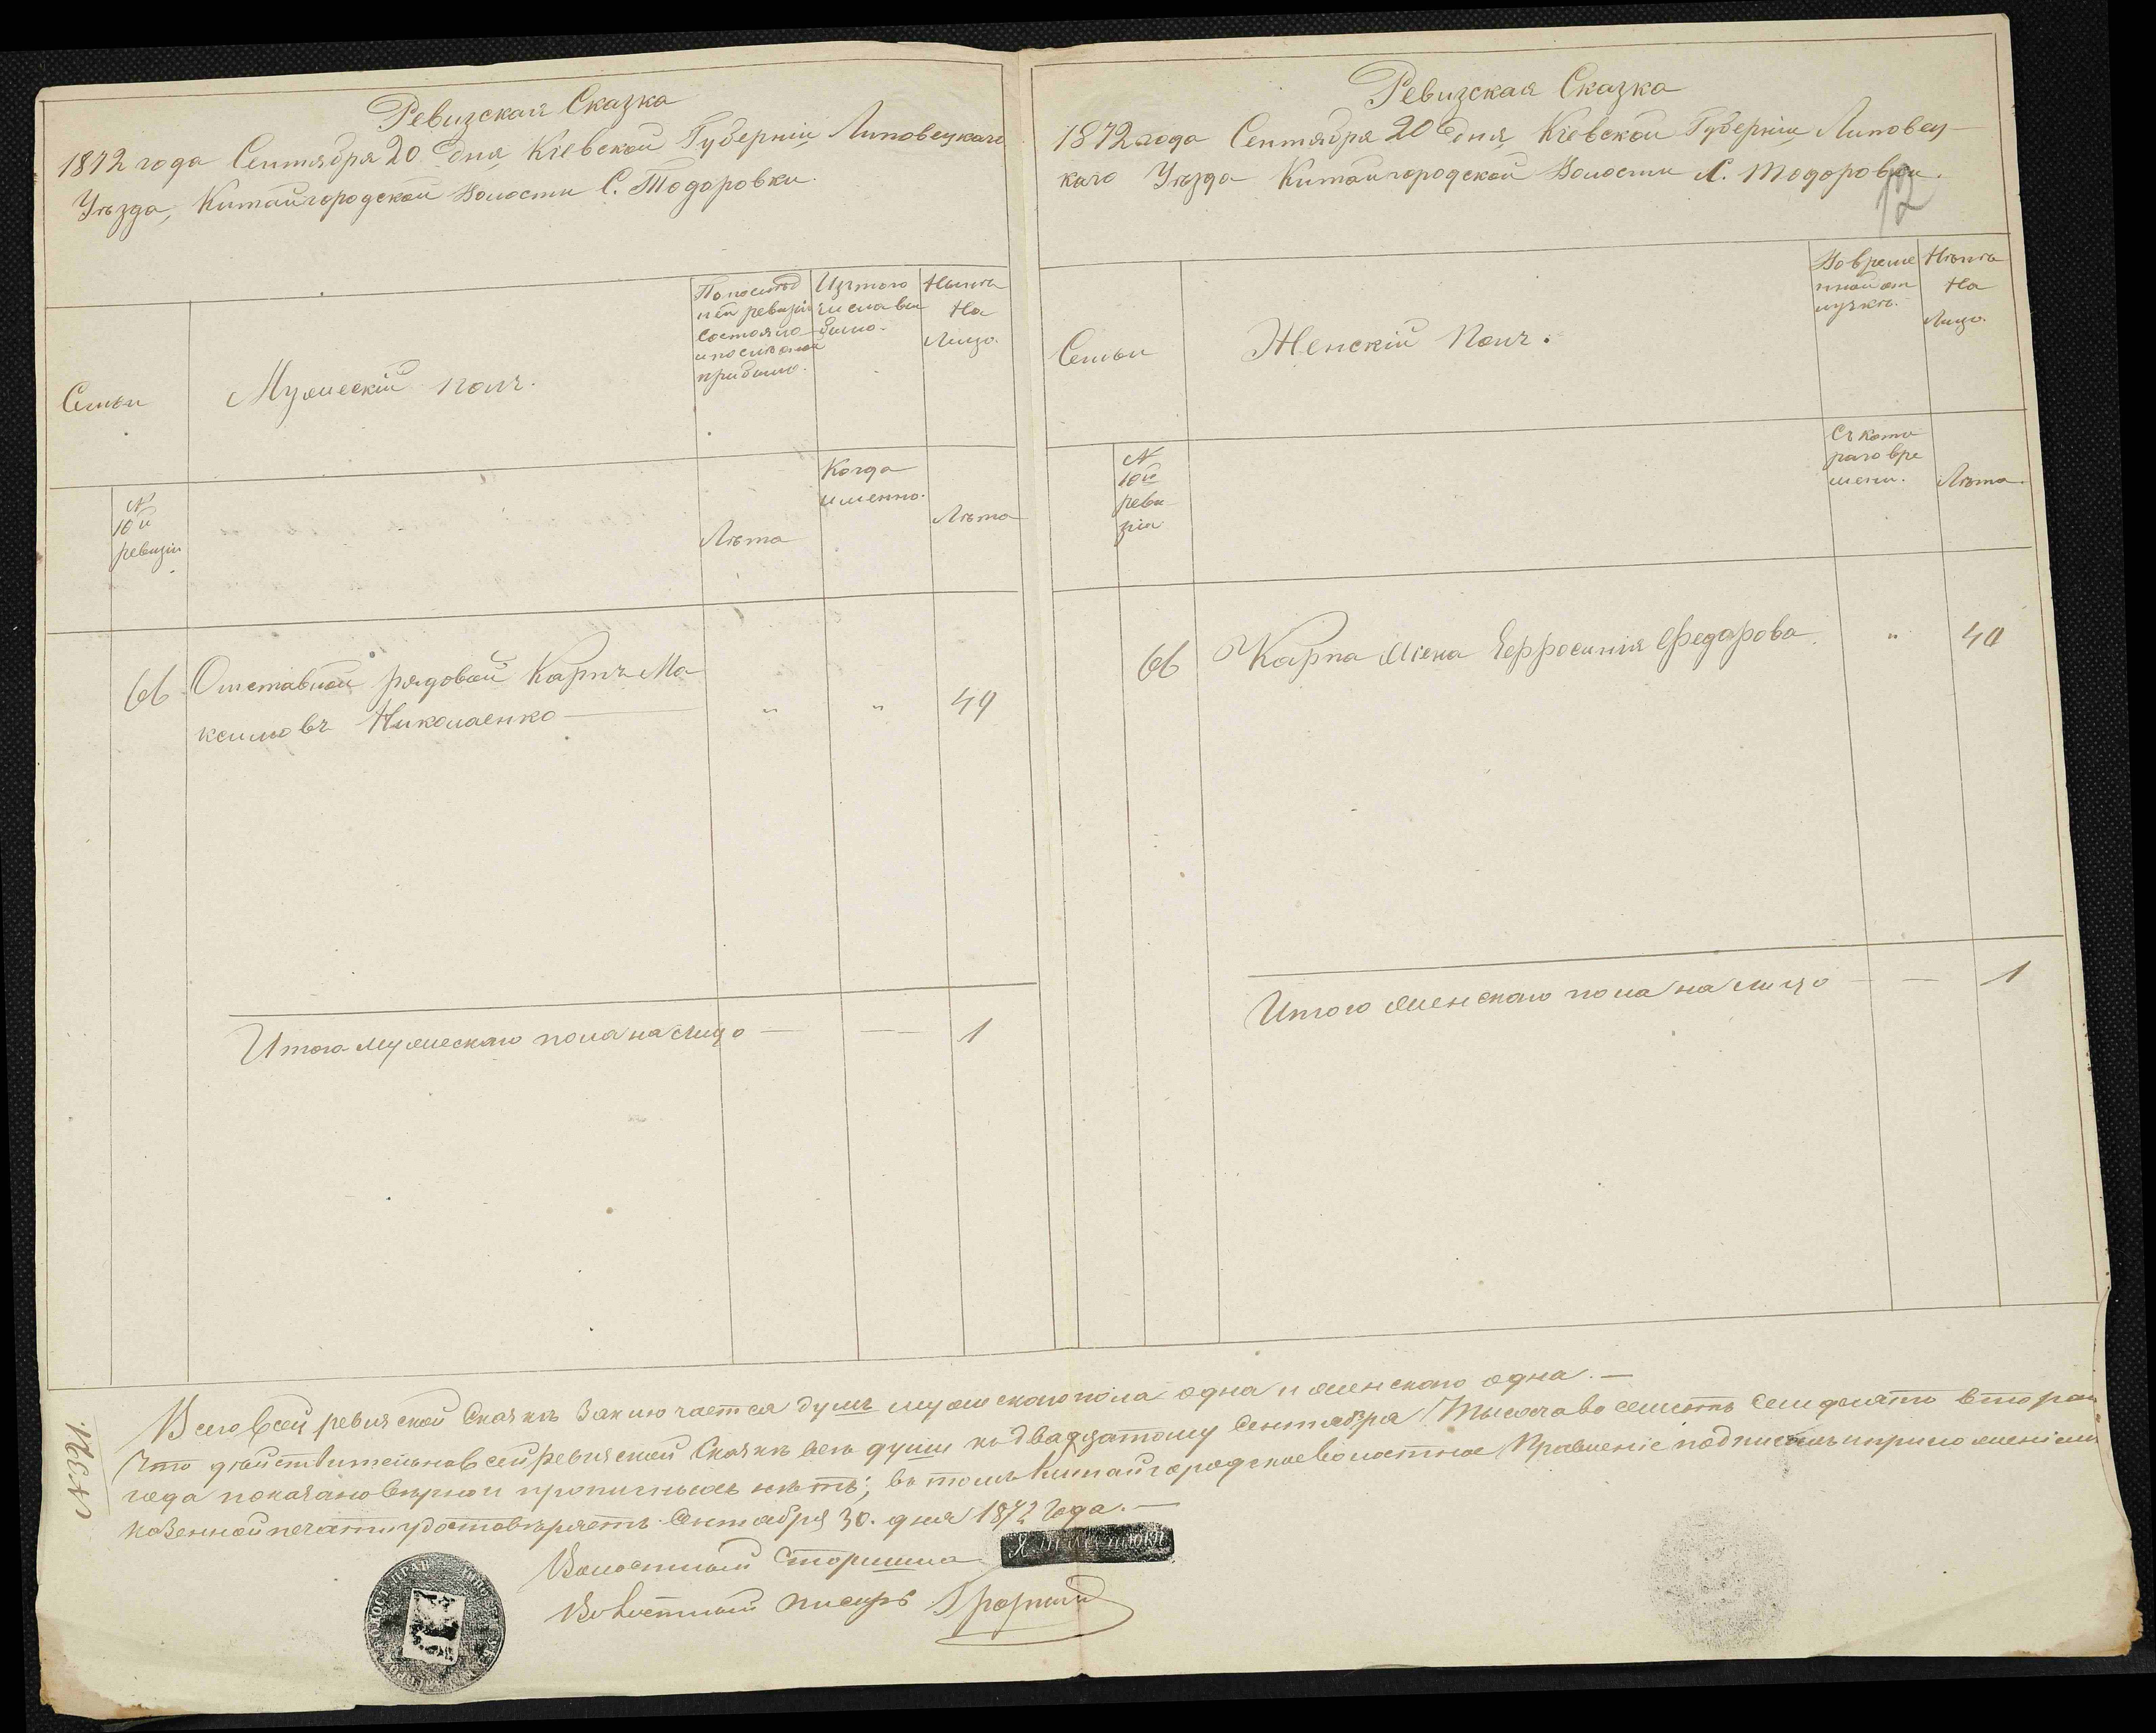 Ревизская Сказка
1872 года Сентября 20 дня, Кіевской Губерніи Липовецкаго
Уѣзда, Китайгородской Волости С. Тодоровки.
Семьи
Мужескій полъ.
По послѣд
ней ревизіи
состояло
и послѣ оной
прибыло.
Изъ того
числа вы
было.
Нынѣ
На
Лицо.
№
10й
ревизіи
Лѣта
Когда
именно.
Лѣта
66
Отставной рядовой Карпъ Ма
ксимовъ Николаенко
"
"
49
Итого мужескаго пола на лицо
1
Ревизская Сказка
1872 года Сентября 20 дня, Кіевской Губерніи Липовец
каго Уѣзда Китайгородской Волости С. Тодоровки.
12
Семьи
Женскій Полъ.
Во време
нной от
лучкѣ.
Нынѣ
На
Лицо.
№
10й
реви
зіи
Съ кото
раго вре
мени.
Лѣта.
66
Карпа жена Ефросинія Федорова
"
40
Итого женскаго пола на лицо
1
Всего в сей ревизской Сказкѣ заключается душъ мужескаго пола одна и женскаго одна.
Что дѣйствительно в сей ревизской Сказкѣ всѣ души по двадцатому Сентября Тысяча восемсотъ семдесять втораго
года показано вѣрно и прописныхъ нѣтъ; въ томъ Китайгородское волостное Правленіе подписомъ и приложеніемъ
казенной печати удостовѣряетъ. Сентября 30. дня 1872 года.
Волостный Старшина
Волостный писарь
№ 391.